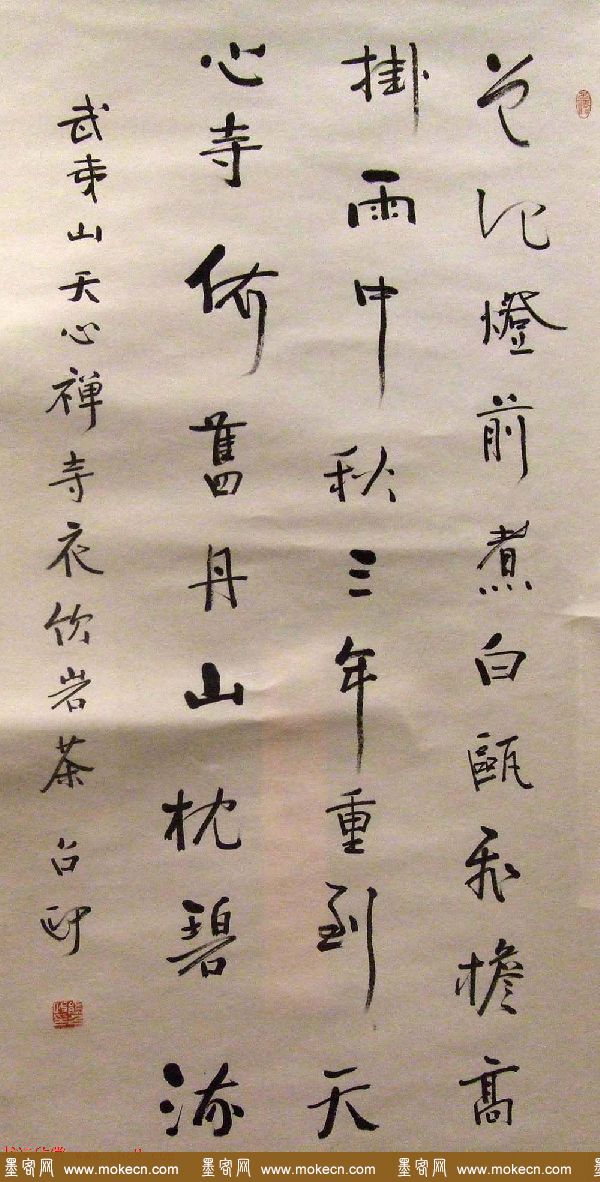 曾记燈前煮白甌飛檐高
掛雨中秋三年重到天
心寺依舊丹山枕碧流
武夷山天心禅寺夜饮岩茶
墨客网 www.mokecn.com 墨客网 www.mokecn.com 墨客网 www.mokecn.com